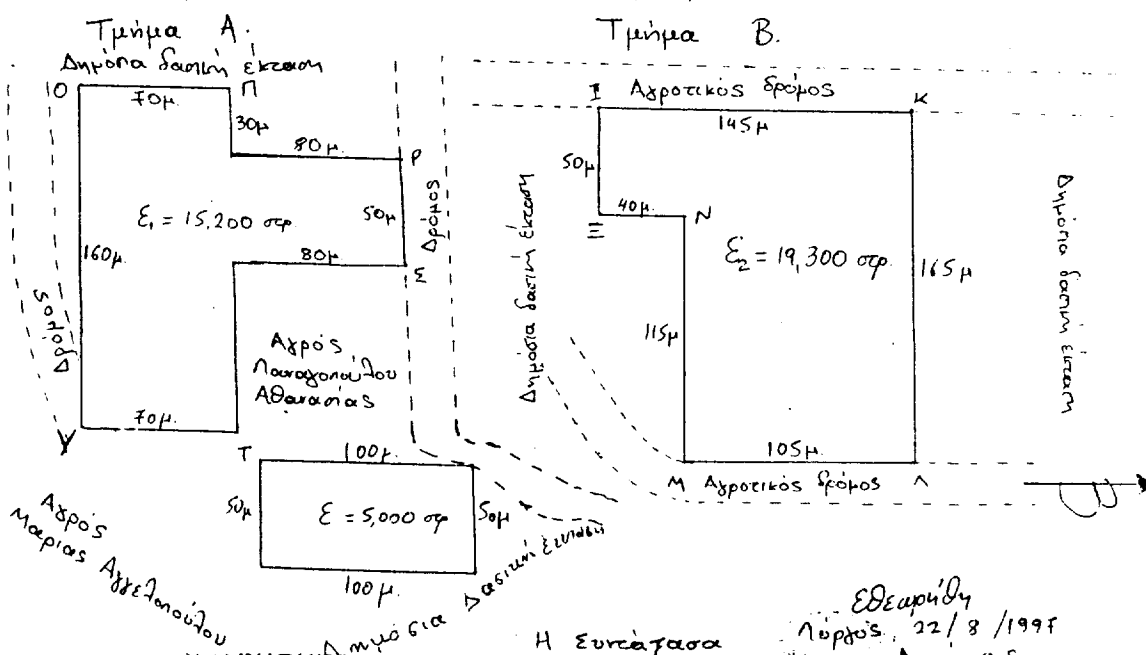 Τμήμα Α.
Δημόσια δασική έκταση
Ο
70μ.
Π
30μ
80μ.
Ρ
50μ
Δρόμος
ε₁ = 15,200 στρ.
160μ.
80μ.
Σ
Δρόμος
Αγρός
Παναγοπούλου
Αθανασίας
70μ.
Υ
Τ
100μ.
50μ
ε = 5,000 στρ
50μ
100μ.
Αγρός
Μαρίας Αγγελοπούλου
Δημόσια Δασική έκταση
Τμήμα Β.
Ι
Αγροτικός δρόμος
Κ
145μ
50μ
40μ.
Ν
Ξ
Δημόσια δασική έκταση
ε₂ = 19,300 στρ.
165μ
115μ
Δημόσια δασική έκταση
105μ.
Μ
Αγροτικός δρόμος
Λ
Β
Η Συντάξασα
Εθεωρήθη
Πύργος, 22/8/1997